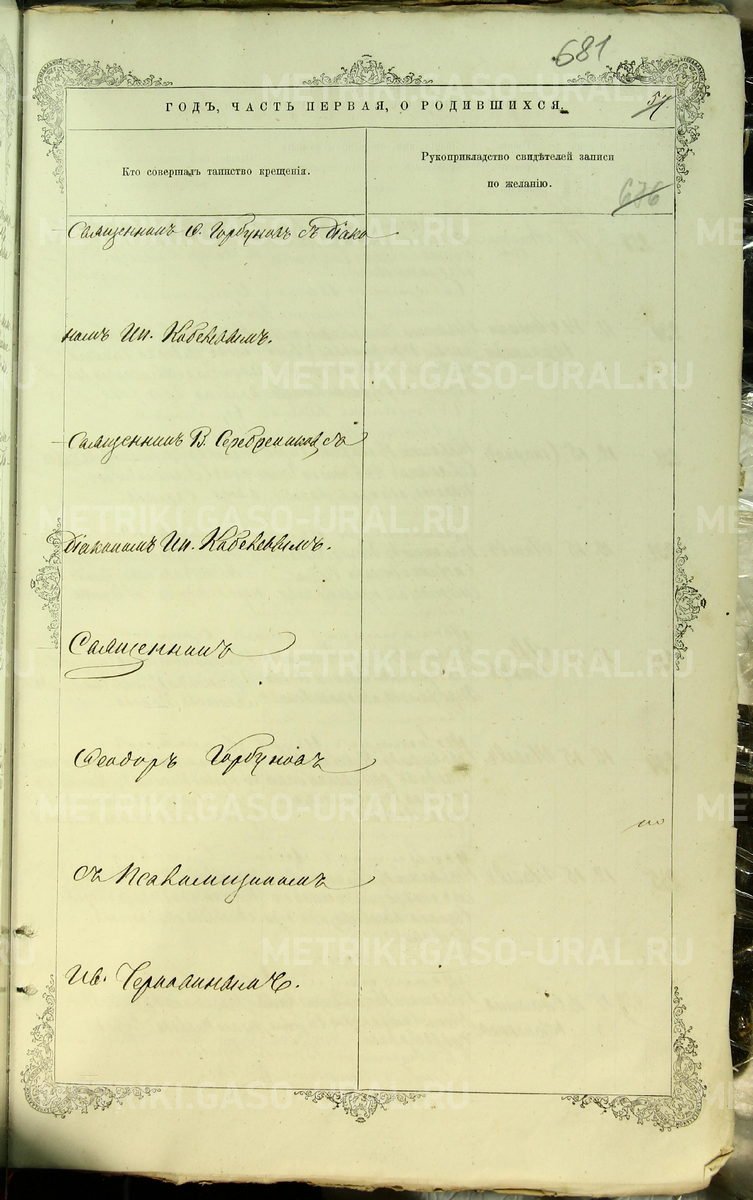 681
ГОДЪ, ЧАСТЬ ПЕРВАЯ, О РОДИВШИХСЯ.
57.
Кто совершалъ таинство крещенія.
Рукоприкладство свидѣтелей записи
по желанію.
676
Священникъ Ѳ. Горбуновъ съ діако
номъ Ип.
Священникъ В. Серебрениковъ съ
діакономъ Ип.
Священникъ
Ѳеодоръ Горбуновъ
съ Псаломщикомъ
Ив.
METRIKI.GASO-URAL.RU